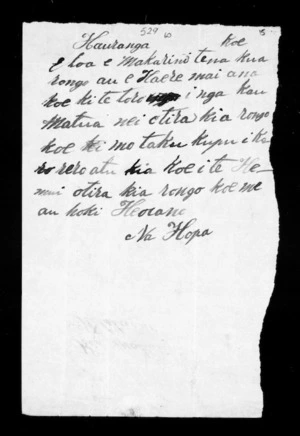 529
Hauranga koe
E loa e Makarini tena kua
rongo au e Haere mai ana
koe ki te toro i nga kau
Matua nei otira kia rongo
koe ki mo taku kupu i ko
rorero atu kia koe i te He
mui otira kia rongo koe me
au hoki Heoiano
Na Hopa